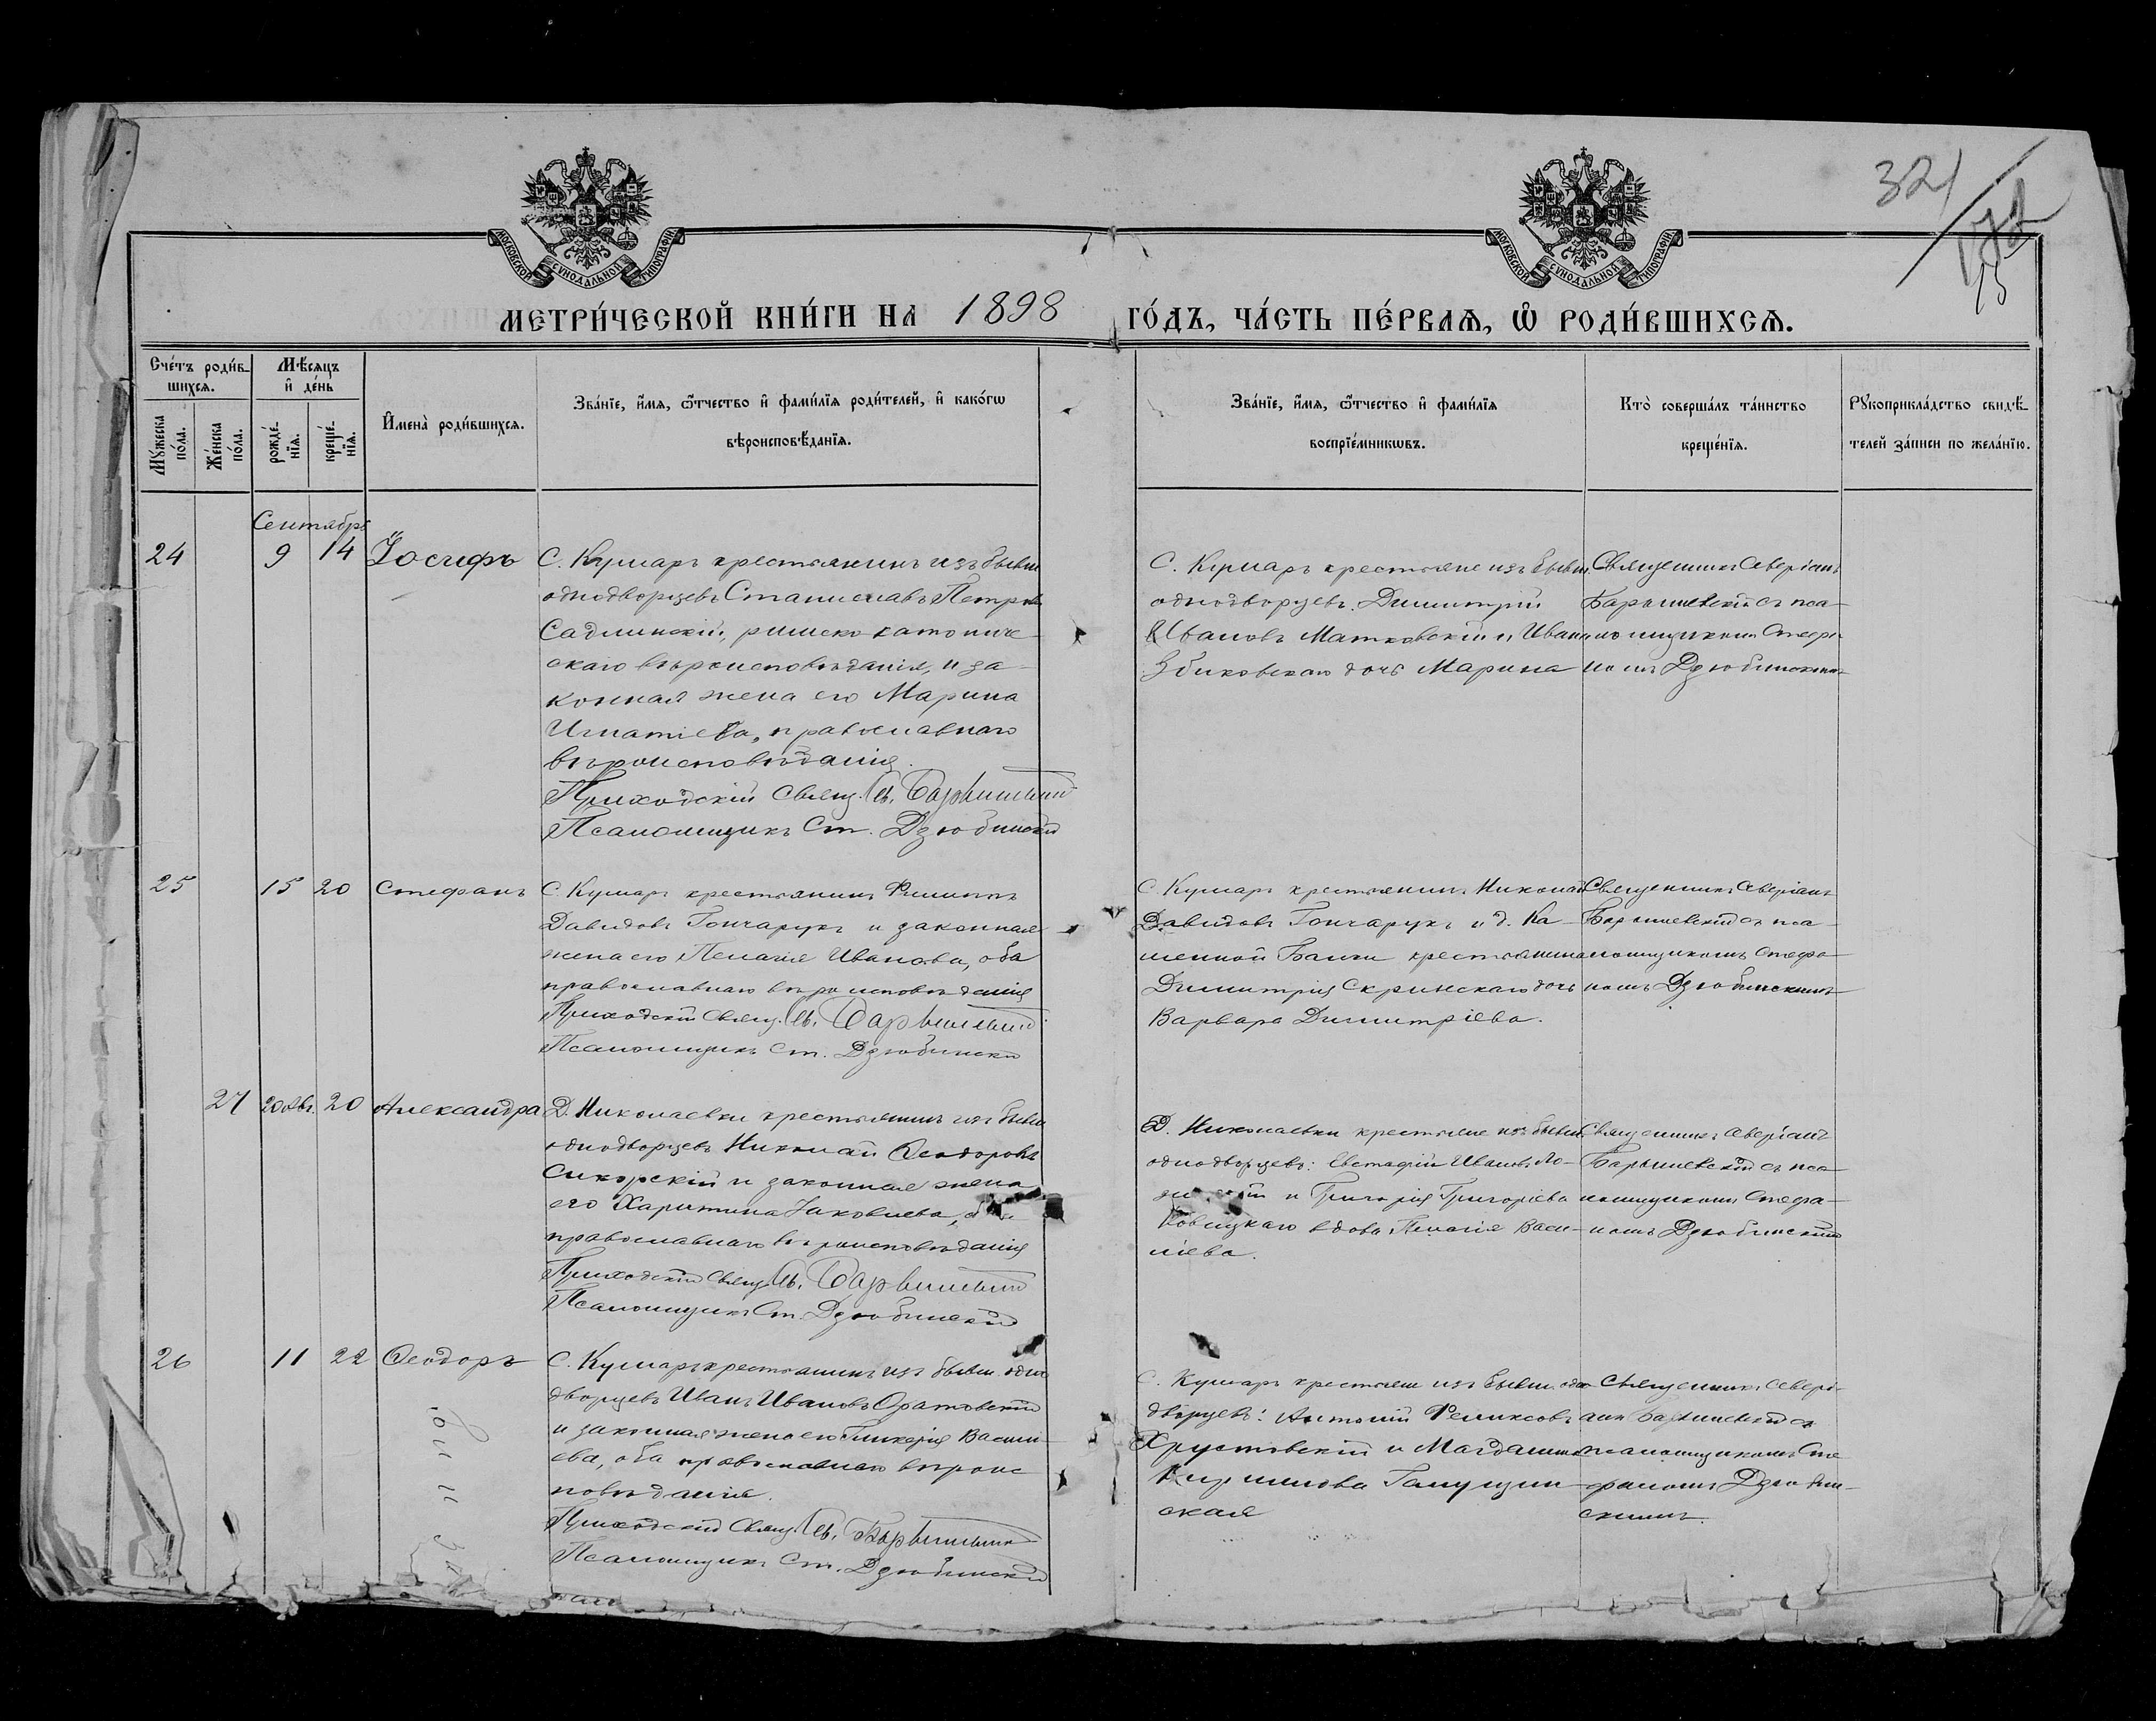 321
МОСКОВСКОЙ СѴНОДАЛЬНОЙ ТИПОГРАФІИ
МОСКОВСКОЙ СѴНОДАЛЬНОЙ ТИПОГРАФІИ
МЕТРИ́ЧЕСКОЙ КНИ́ГИ НА 1898 ГО́ДЪ, ЧА́СТЬ ПЕ́РВАѦ, Ѡ҆ РОДИ́ВШИХСѦ.
Сче́тъ роди́в-
шихсѧ.
Мꙋ́жеска по́ла.
Же́нска по́ла.
Мѣ́сѧцъ
и҆ де́нь
рожде́-нїѧ.
креще́-нїѧ.
И҆мена̀ роди́вшихсѧ.
Зва́нїе, и҆́мѧ, ѻ҆́тчество и҆ фами́лїѧ роди́телей, и҆ како́гѡ
вѣроисповѣ́данїѧ.
Зва́нїе, и҆́мѧ, ѻ҆́тчество и҆ фами́лїѧ
воспрїе́мникѡвъ.
Кто̀ соверша́лъ та́инство
креще́нїѧ.
Рꙋкоприкла́дство свидѣ́-
телей за́писи по жела́нїю.
Сентябрь
24 9 14 Іосифъ
С. Кумаръ крестьянинъ изъ бывш.
однодворцевъ Станиславъ Петровъ
Садлинскій, римско-католиче-
скаго вѣроисповѣданія, и за-
конная жена его Марина
Игнатіева, православнаго
вѣроисповѣданія.
Приходскій Свящ. Св. Барышевскій
Псаломщикъ Ст. Дзюбинскій
С. Кумаръ крестьяне изъ бывш.
однодворцевъ: Димитрій
Ивановъ Матковскій и Ивана
Збиковскаго дочь Марина
Священникъ Северіанъ
Барышевскій съ пса-
ломщикомъ Стефа-
номъ Дзюбинскимъ
25 15 20 Стефанъ
С. Кумаръ крестьянинъ Филиппъ
Давидовъ Гончарукъ и законная
жена его Пелагія Иванова, оба
православнаго вѣроисповѣданія
Приходскій Свящ. Св. Барышевскій
Псаломщикъ Ст. Дзюбинскій
С. Кумаръ крестьянинъ Николай
Давидовъ Гончарукъ и д. Ка-
менной Балки крестьянина
Димитрія Скринскаго дочь
Варвара Димитріева.
Священникъ Северіанъ
Барышевскій съ пса-
ломщикомъ Стефа-
номъ Дзюбинскимъ
27 20 Авг. 20 Александра
Д. Николаевки крестьянинъ изъ бывш.
однодворцевъ Николай Ѳеодоровъ
Сикорскій и законная жена
его Харитина Іаковлева, оба
православнаго вѣроисповѣданія
Приходскій Свящ. Св. Барышевскій
Псаломщикъ Ст. Дзюбинскій
Д. Николаевки крестьяне изъ бывш.
однодворцевъ: Евстафій Ивановъ
и Григорія Григоріева
вдова Пелагія Васи-
ліева.
Священникъ Северіанъ
Барышевскій съ пса-
ломщикомъ Стефа-
номъ Дзюбинскимъ
26 11 22 Ѳеодоръ
С. Кумаръ крестьянинъ изъ бывш. одно-
дворцевъ Иванъ Ивановъ Оратовскій
и законная жена его Гликерія Василі-
ева, оба православнаго вѣроис-
повѣданія.
Приходскій Свящ. Св. Барышевскій
Псаломщикъ Ст. Дзюбинскій
С. Кумаръ крестьяне изъ бывш. одно-
дворцевъ: Антоній Феликсовъ
Хрустовскій и Магдалина
Кириллова Галущин-
ская
Священникъ Севері-
анъ Барышевскій съ
псаломщикомъ Сте-
фаномъ Дзюбин-
скимъ.